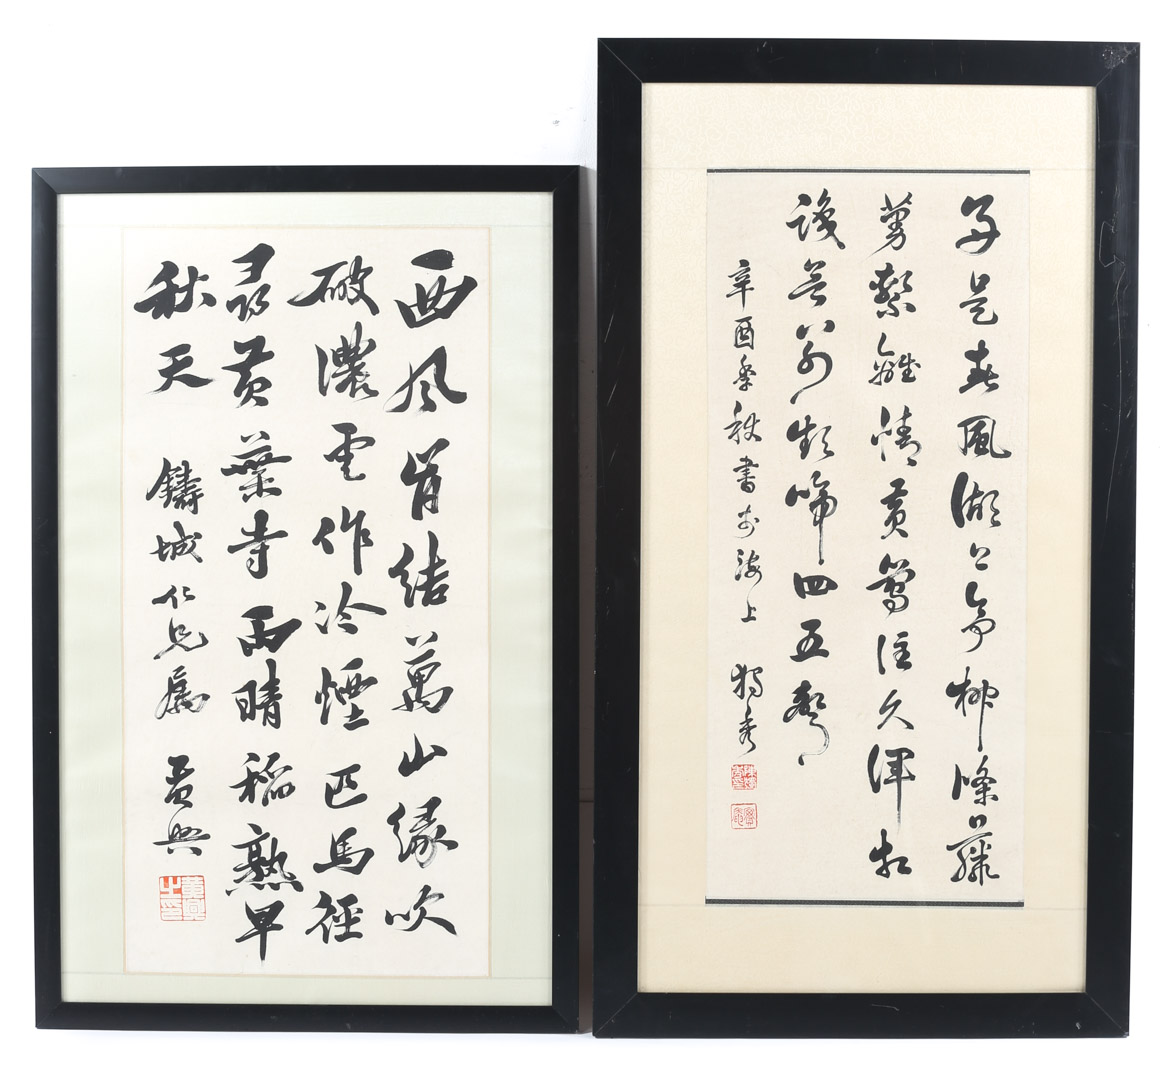 西風肯結萬山緣吹
破濃雲作冷煙匹馬徑
尋黃葉寺雨晴稻熟早
秋天
鑄城仁兄屬 黃興
黃興之印
好是春風湖上亭柳條藤
蔓繫離情黃鶯住久渾相
識欲別頻啼四五聲
辛酉季秋書於海上 獨秀